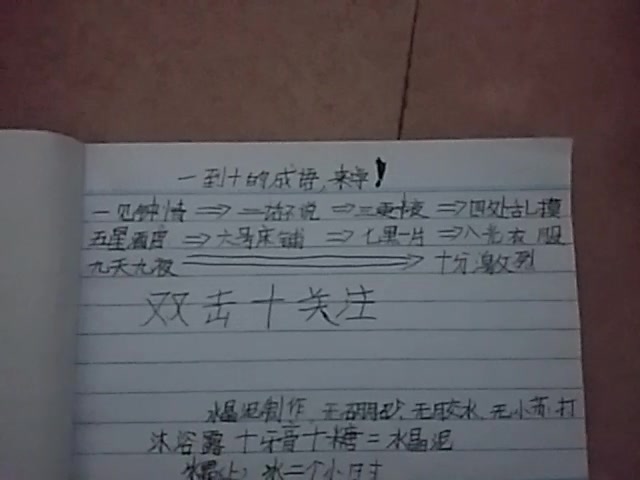 一到十的成语,来学!
一见钟情⇒二话不说⇒三更半夜⇒四处乱摸
五星酒店⇒六号床铺⇒七黑一片⇒八光衣服
九天九夜⇒十分激烈
双击十关注
水晶泥制作,无硼砂,无胶水,无小苏打
沐浴露十牙膏十糖=水晶泥
冰二个小时